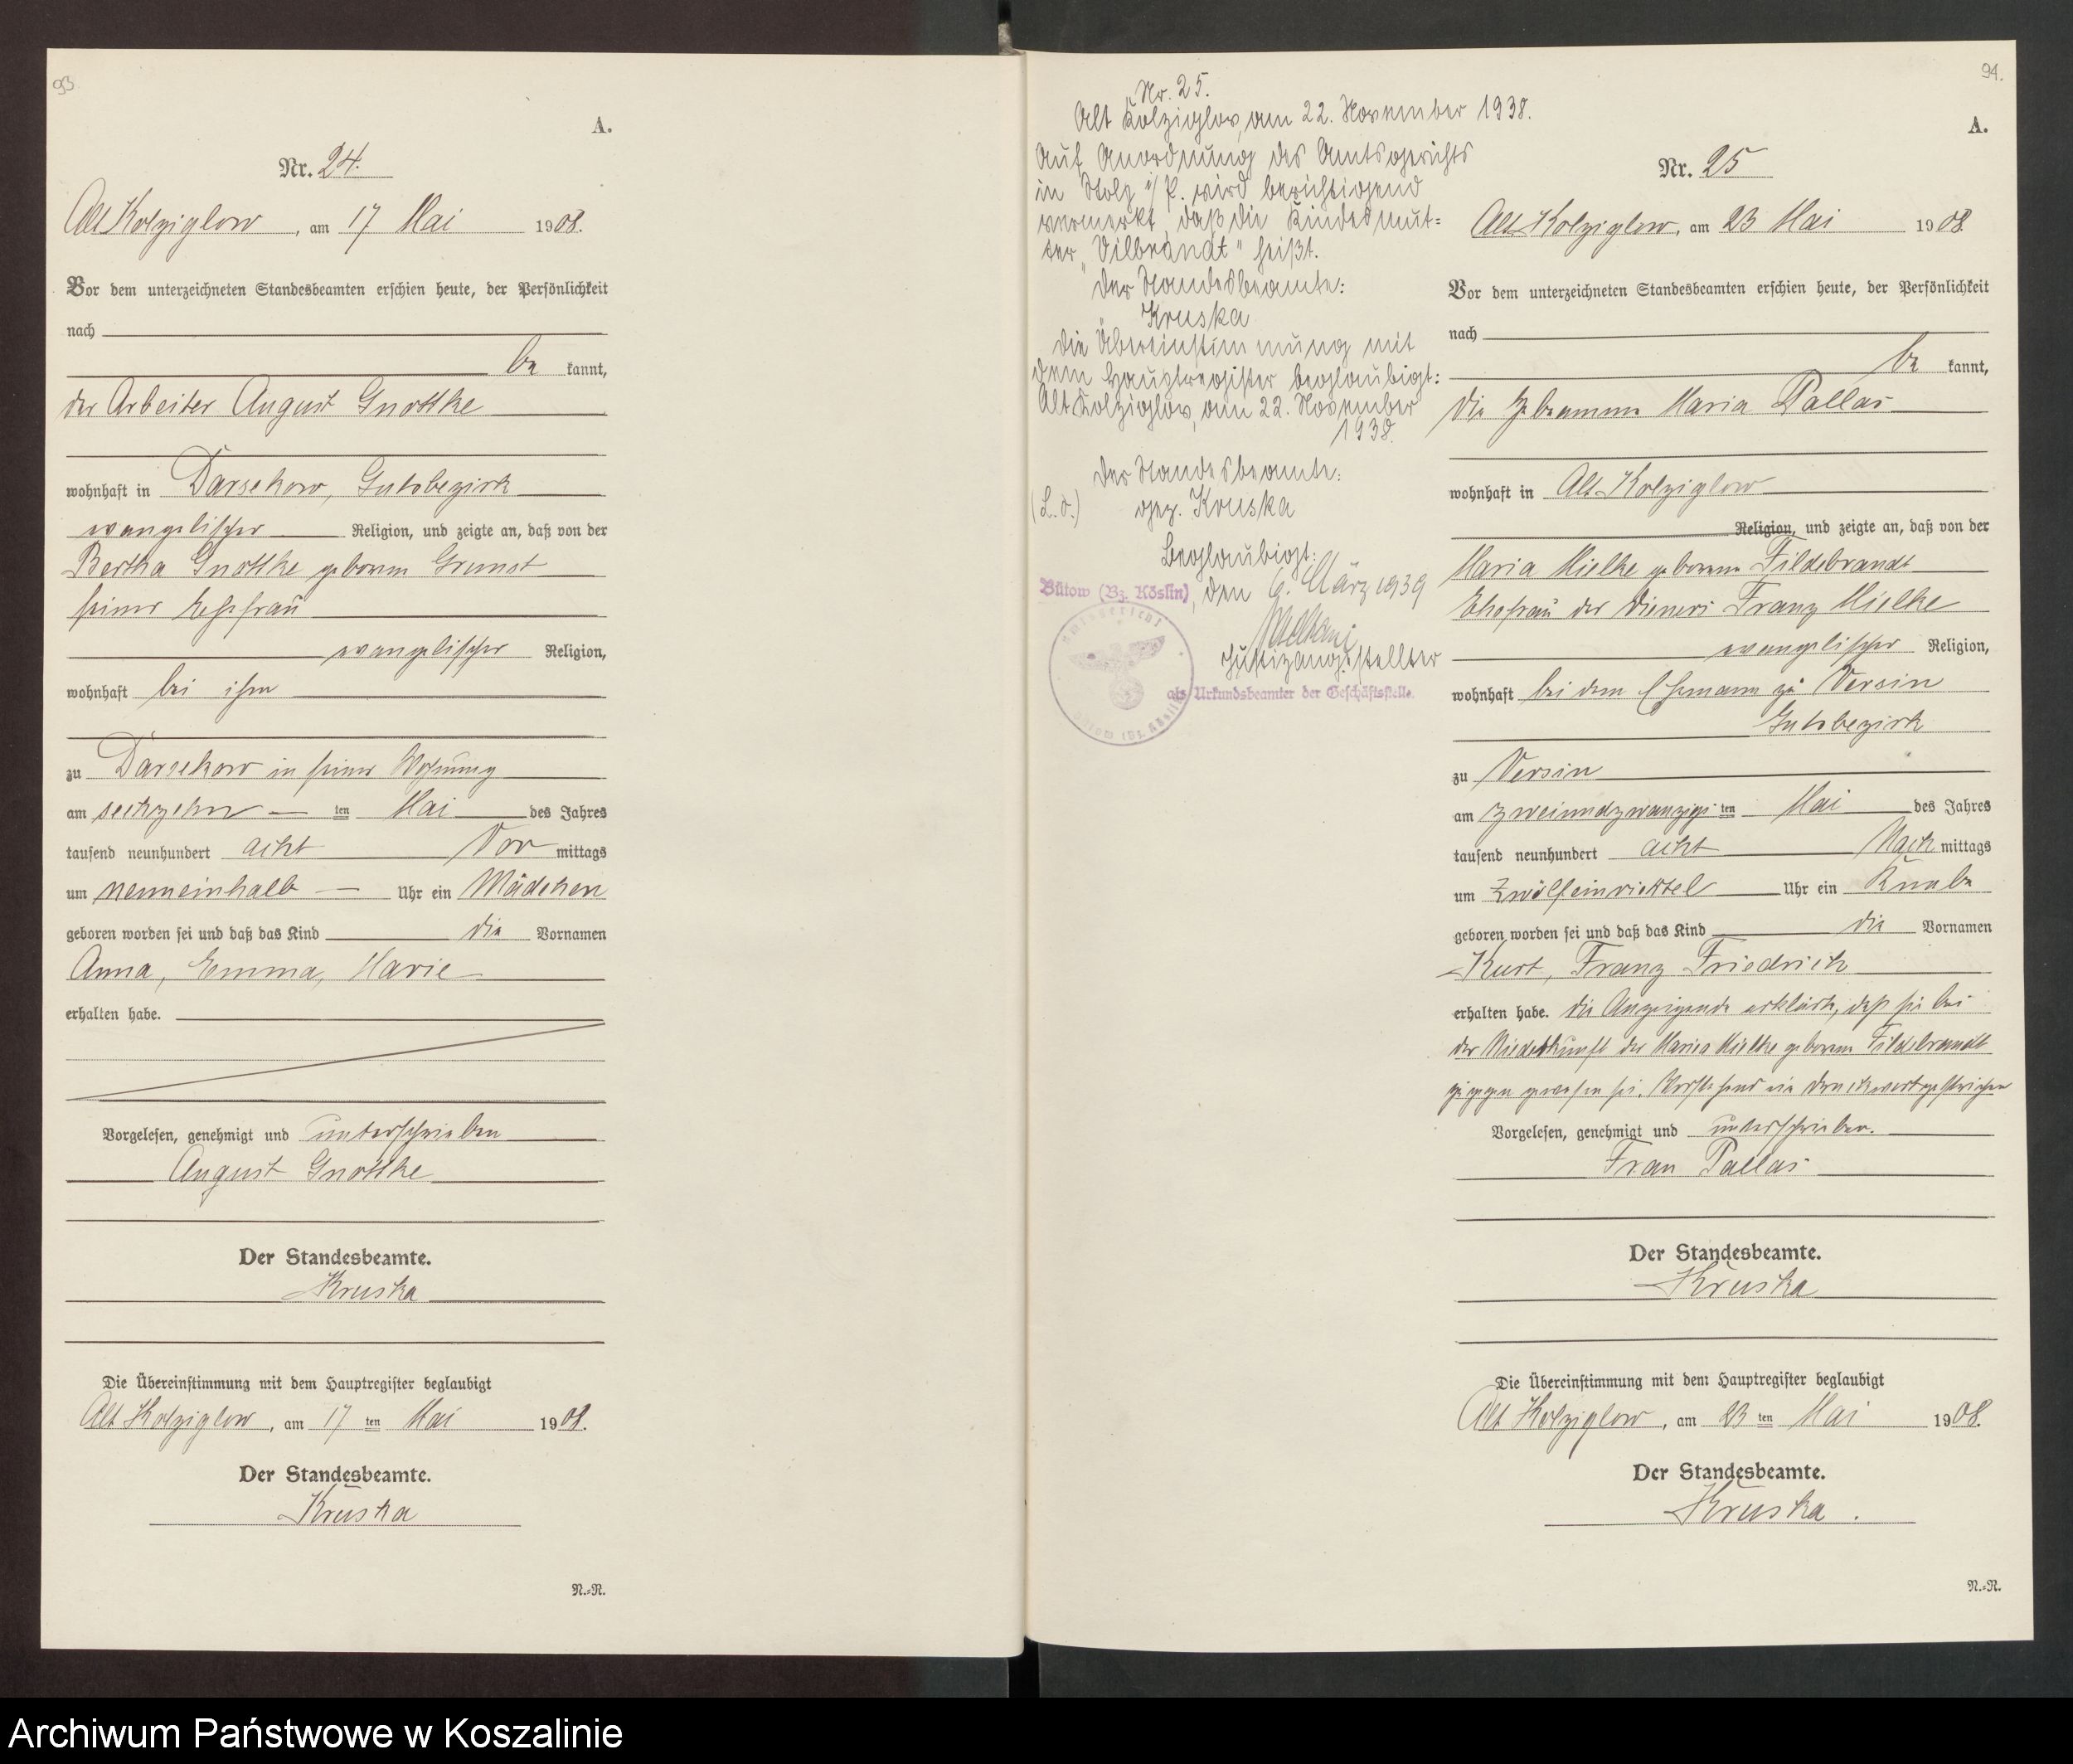 93
A.
Nr. 24.
Alt Kolziglow, am 17 Mai 1908.
Vor dem unterzeichneten Standesbeamten erschien heute, der Persönlichkeit
nach
be kannt,
der Arbeiter August Gnottke
wohnhaft in Darsekow, Gutsbezirk
evangelischer Religion, und zeigte an, daß von der
Bertha Gnottke geborene Grunst
seiner Ehefrau
evangelischer Religion,
wohnhaft bei ihm
zu Darsekow in seiner Wohnung
am sechzehn ten Mai des Jahres
tausend neunhundert acht Vor mittags
um neuneinhalb Uhr ein Mädchen
geboren worden sei und daß das Kind die Vornamen
Anna, Emma, Marie
erhalten habe.
Vorgelesen, genehmigt und unterschrieben
August Gnottke
Der Standesbeamte.
Kruska
Die Übereinstimmung mit dem Hauptregister beglaubigt
Alt Kolziglow, am 17 ten Mai 1908.
Der Standesbeamte.
Kruska
N.=N.
Nr. 25.
Alt Kolziglow, am 22. November 1938.
Auf Anordnung des Amtsgerichts
in Stolp i/P. wird berichtigend
vermerkt, daß die Kindesmut=
ter „Vilbrandt" heißt.
Der Standesbeamte:
Kruska
Die Übereinstimmung mit
dem Hauptregister beglaubigt:
Alt Kolziglow, am 22. November
1938.
Der Standesbeamte:
(L.S.) gez. Kruska
Beglaubigt:
Bütow (Bz. Köslin), den 6. März 1939
Justizangestellter
als Urkundsbeamter der Geschäftsstelle.
Amtsgericht
Bütow (Bz. Köslin)
94.
A.
Nr. 25
Alt Kolziglow, am 23 Mai 1908
Vor dem unterzeichneten Standesbeamten erschien heute, der Persönlichkeit
nach
be kannt,
die Hebamme Maria Pallas
wohnhaft in Alt Kolziglow
Religion, und zeigte an, daß von der
Maria Mielke geborene Fildebrandt
Ehefrau des Dieners Franz Mielke
evangelischer Religion,
wohnhaft bei dem Ehemann zu Versin
Gutsbezirk
zu Versin
am zweiundzwanzigs ten Mai des Jahres
tausend neunhundert acht Nach mittags
um zwölfeinviertel Uhr ein Knabe
geboren worden sei und daß das Kind die Vornamen
Kurt, Franz Friedrich
erhalten habe. Die Anzeigende erklärte, daß sie bei
der Niederkunft der Maria Mielke geborene Fildebrandt
zugegen gewesen sei. Vorstehend ein Druckwort gestrichen
Vorgelesen, genehmigt und unterschrieben.
Frau Pallas
Der Standesbeamte.
Kruska
Die Übereinstimmung mit dem Hauptregister beglaubigt
Alt Kolziglow, am 23 ten Mai 1908.
Der Standesbeamte.
Kruska.
N.=N.
Archiwum Państwowe w Koszalinie